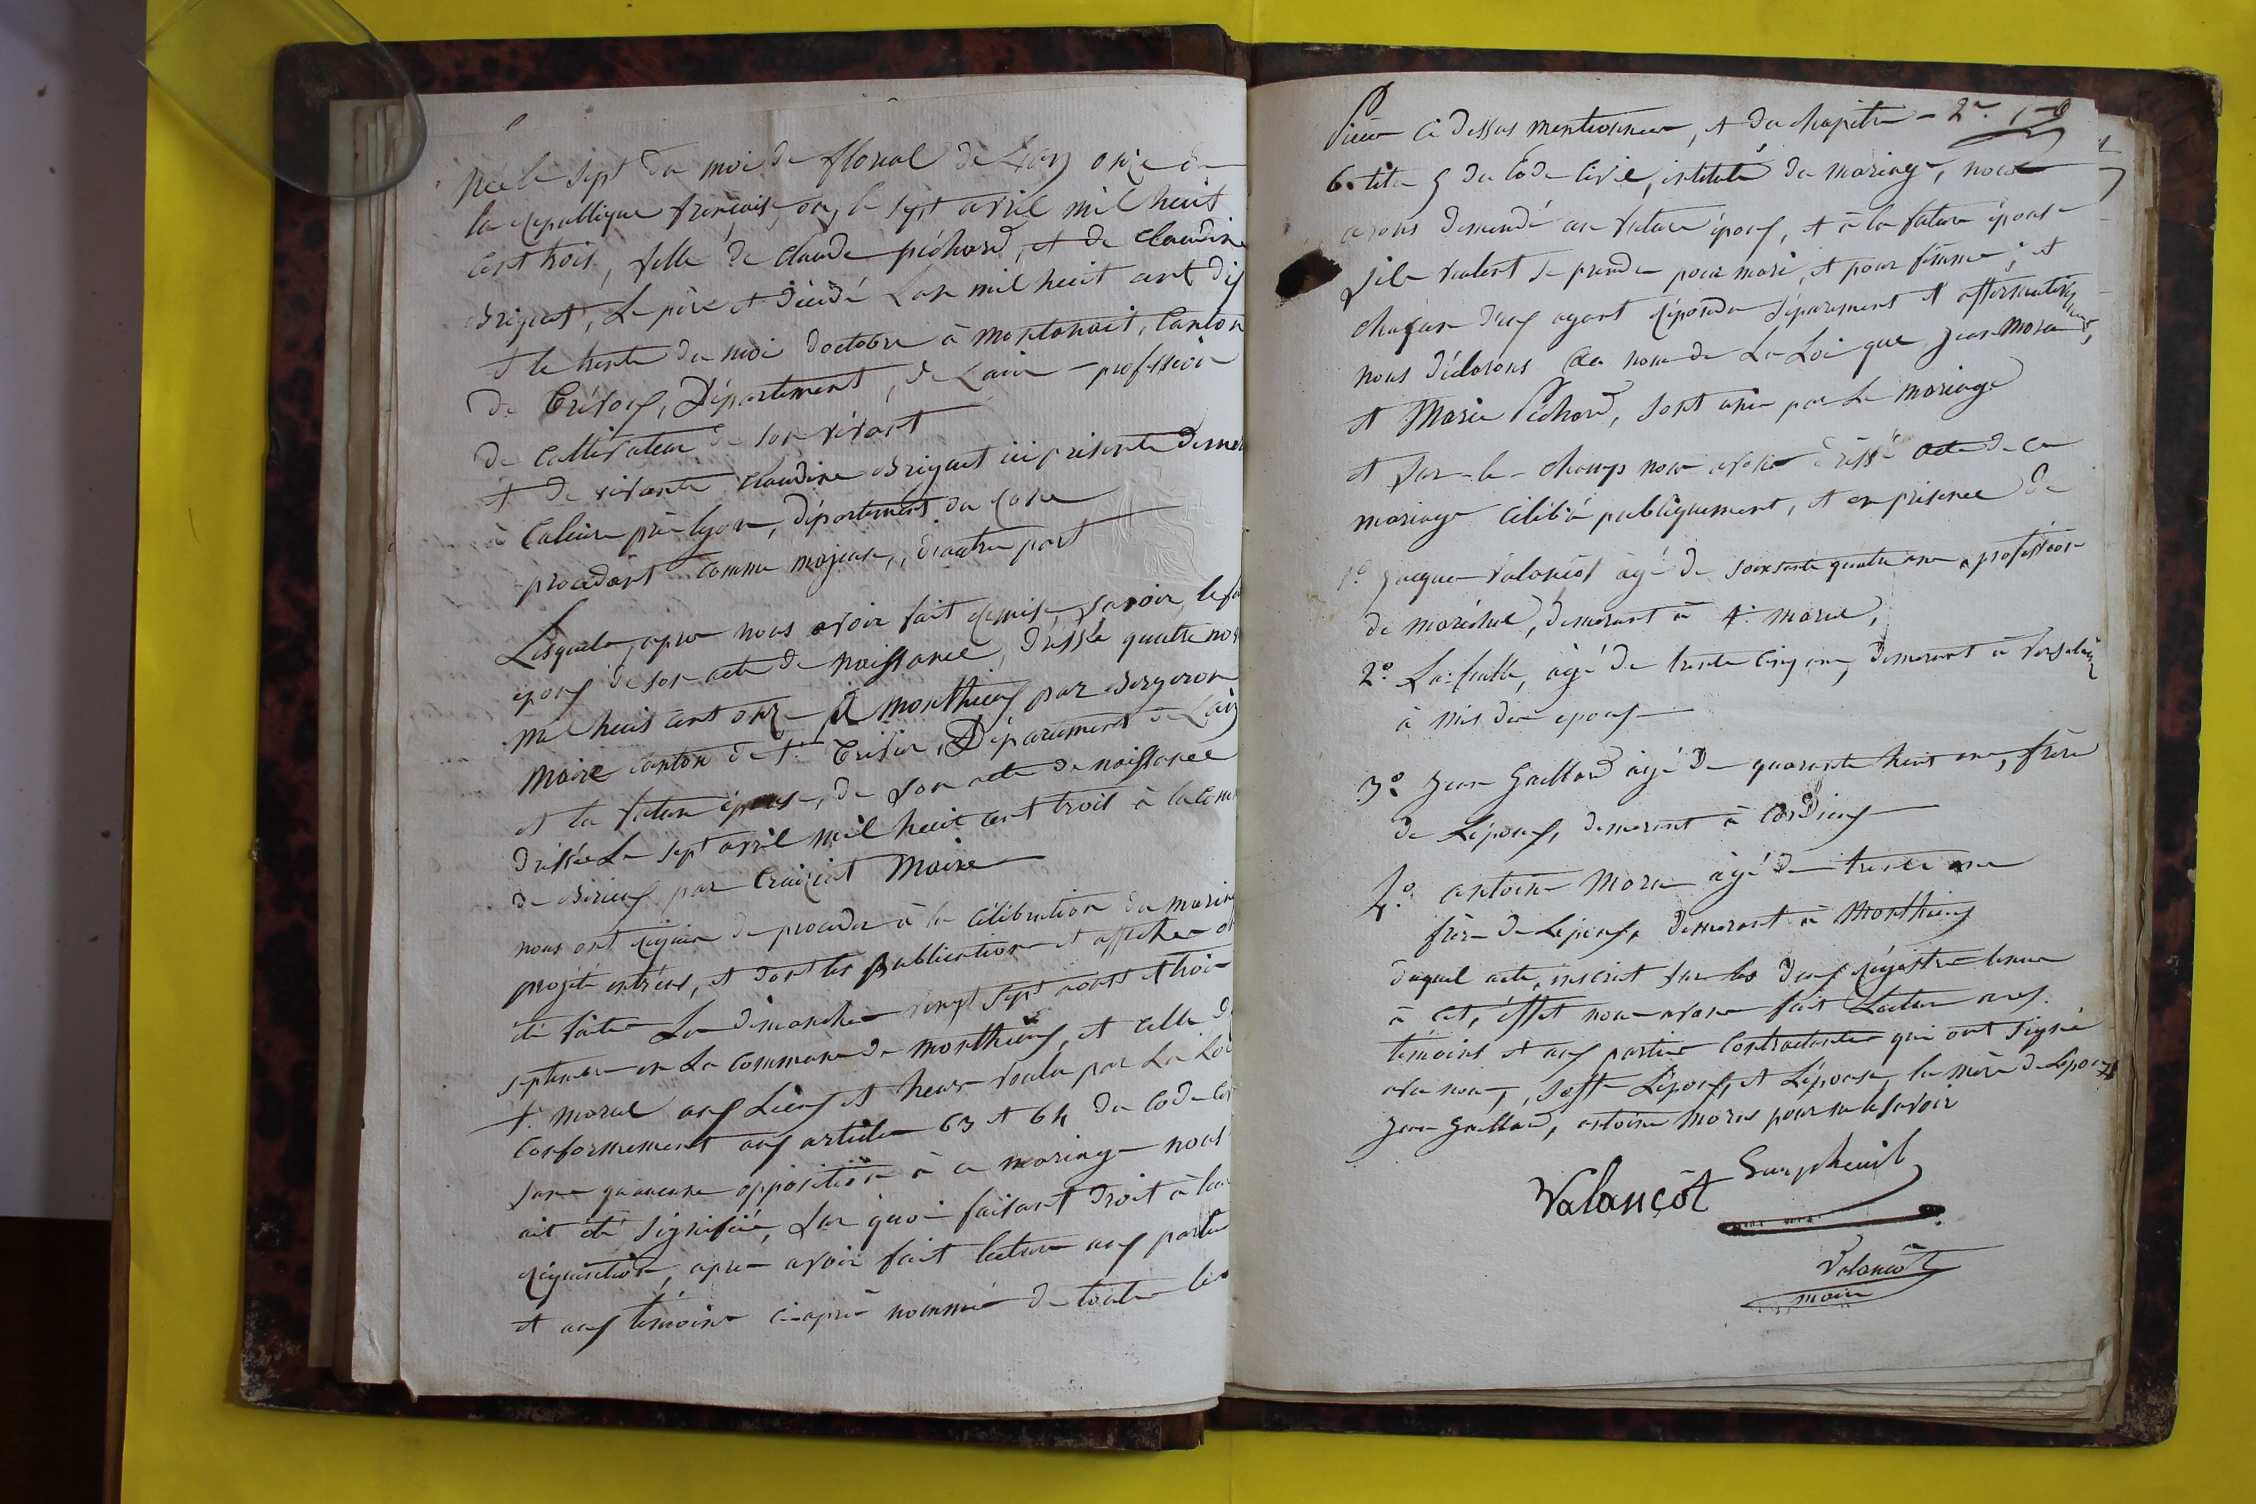 née le sept du moi de floreal de Lan onze de
la republique françaist, ou, le sept avril mil huit
cent trois, fille de claude péchard, et de claudine
Briguet, Le père et décédé Lan mil huit cent dix
et le trente du moi doctobre à montanait, Canton
de Trévoux, Département, de Lain - profession
de Cultivateur de son vivant
et de vivante claudine Briguet ici présente
à Caluire près lyon, département du Rone
procedant comme majeure, d'autre part
Lesquels, apres nous avoir fait remise, savoir, le
epoux de son acte de naissance, dressée quatre
mil huit cent onze à monthieux par Bergeron
Maire canton de St. Trivier, Département de Lain
et la future épouse, de son acte de naissance
dressée Le sept avril mil huit cent trois à la
de Birieux par Maire
nous ont requis de proceder à la célébration du
projeté entreux, et dont les publication et affiches
été faite Les dimanches vingt sept aoust et trois
septembre en La commune de monthieux, et celle
St. marcel aux Lieux et heure voulu par La Loi
Conformement aux article 63 et 64 du Code
sans qu'aucune opposition à ce mariage nous
ait été signifiée, sur quoi faisant droit à leur
requisition, apres avoir fait lecture aux partie
et aux témoins ci-après nommé de toutes les
Pièce ci dessus mentionnées, et du chapitre
6. titre 5 du Code Civil, intitulé du mariage, nous
avons demandé au future époux, et à la future épouse
s'ils veulent se prendre pour mari, et pour femme; et
chaqun deux ayant répondu séparement et affirmativement,
nous déclarons au nom de La Loi que Jean Morel
et Marie Péchard, sont unis par Le mariage
et sur-le-champs nous avons dressé acte de ce
mariage célébré publiquement, et en présence de
1.° Jacque Valançot agé de soixsante quatre ans, profession
de maréchal, demeurant à St. marcel,
2.° agé de trente cinq ans, demeurant à
à mis des epoux
3.° Jean Gaillard agé de quarante huit ans, frère
de L'époux, demeurant à Cordieux
4.° antoine Morel agé de trente ans
frère de Lepoux, demeurant à Monthieux
duquel acte, inscrit sur les deux régistre tenus
à cet, effet nous avons fait Lecture aux
témoins et aux partie contractantes qui ont signé
avec nous, L'époux, et L'épouse, la mère de Lepoux
Jean Gaillard, antoine Morel pour ne le savoir
Valançot
Valançot
maire